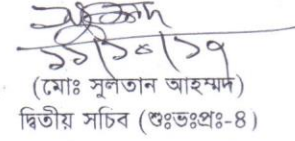 ১১/১০/১৭
(মোঃ সুলতান আহম্মদ)
দ্বিতীয় সচিব (শুঃভঃপ্রঃ-৪)